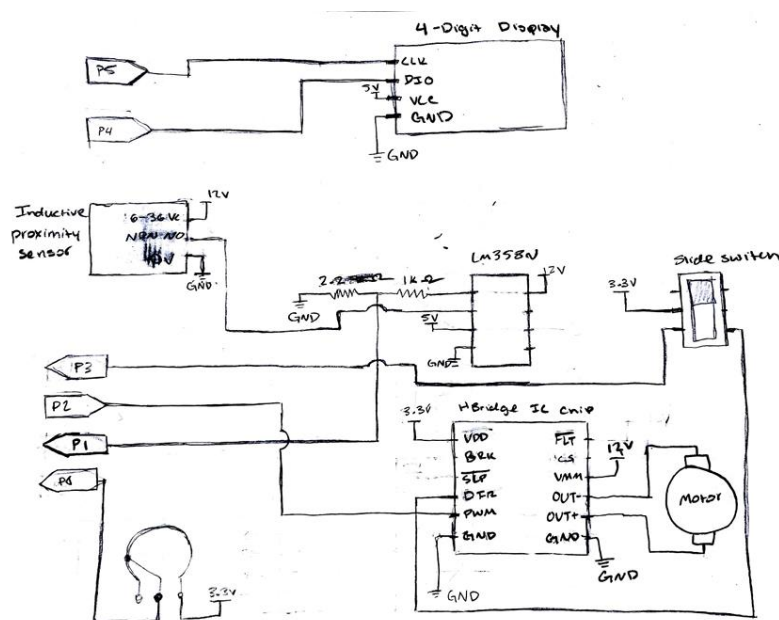 4-Digit Display
P5
CLK
DIO
5V
VCC
GND
P4
GND
Inductive
proximity
sensor
12V
6-36Vc
NPN NO
0V
GND
LM358N
12V
1K Ω
GND
5V
GND
Slide switch
3.3V
P3
P2
P1
P0
HBridge IC chip
3.3V
VDD
BRK
SLP
DIR
PWM
GND
FLT
CS
VMM
OUT-
OUT+
GND
12V
Motor
GND
GND
3.3V